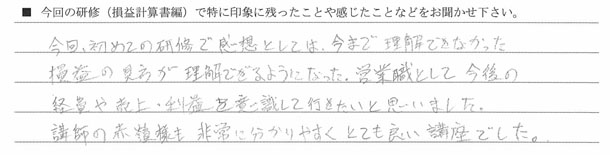 ■ 今回の研修（損益計算書編）で特に印象に残ったことや感じたことなどをお聞かせ下さい。
今回、初めての研修で感想としては、今まで理解できなかった
損益の見方が理解できるようになった。営業職として今後の
経費や売上・利益を意識して行きたいと思いました。
講師の赤 様も非常に分かりやすくとても良い講座でした。